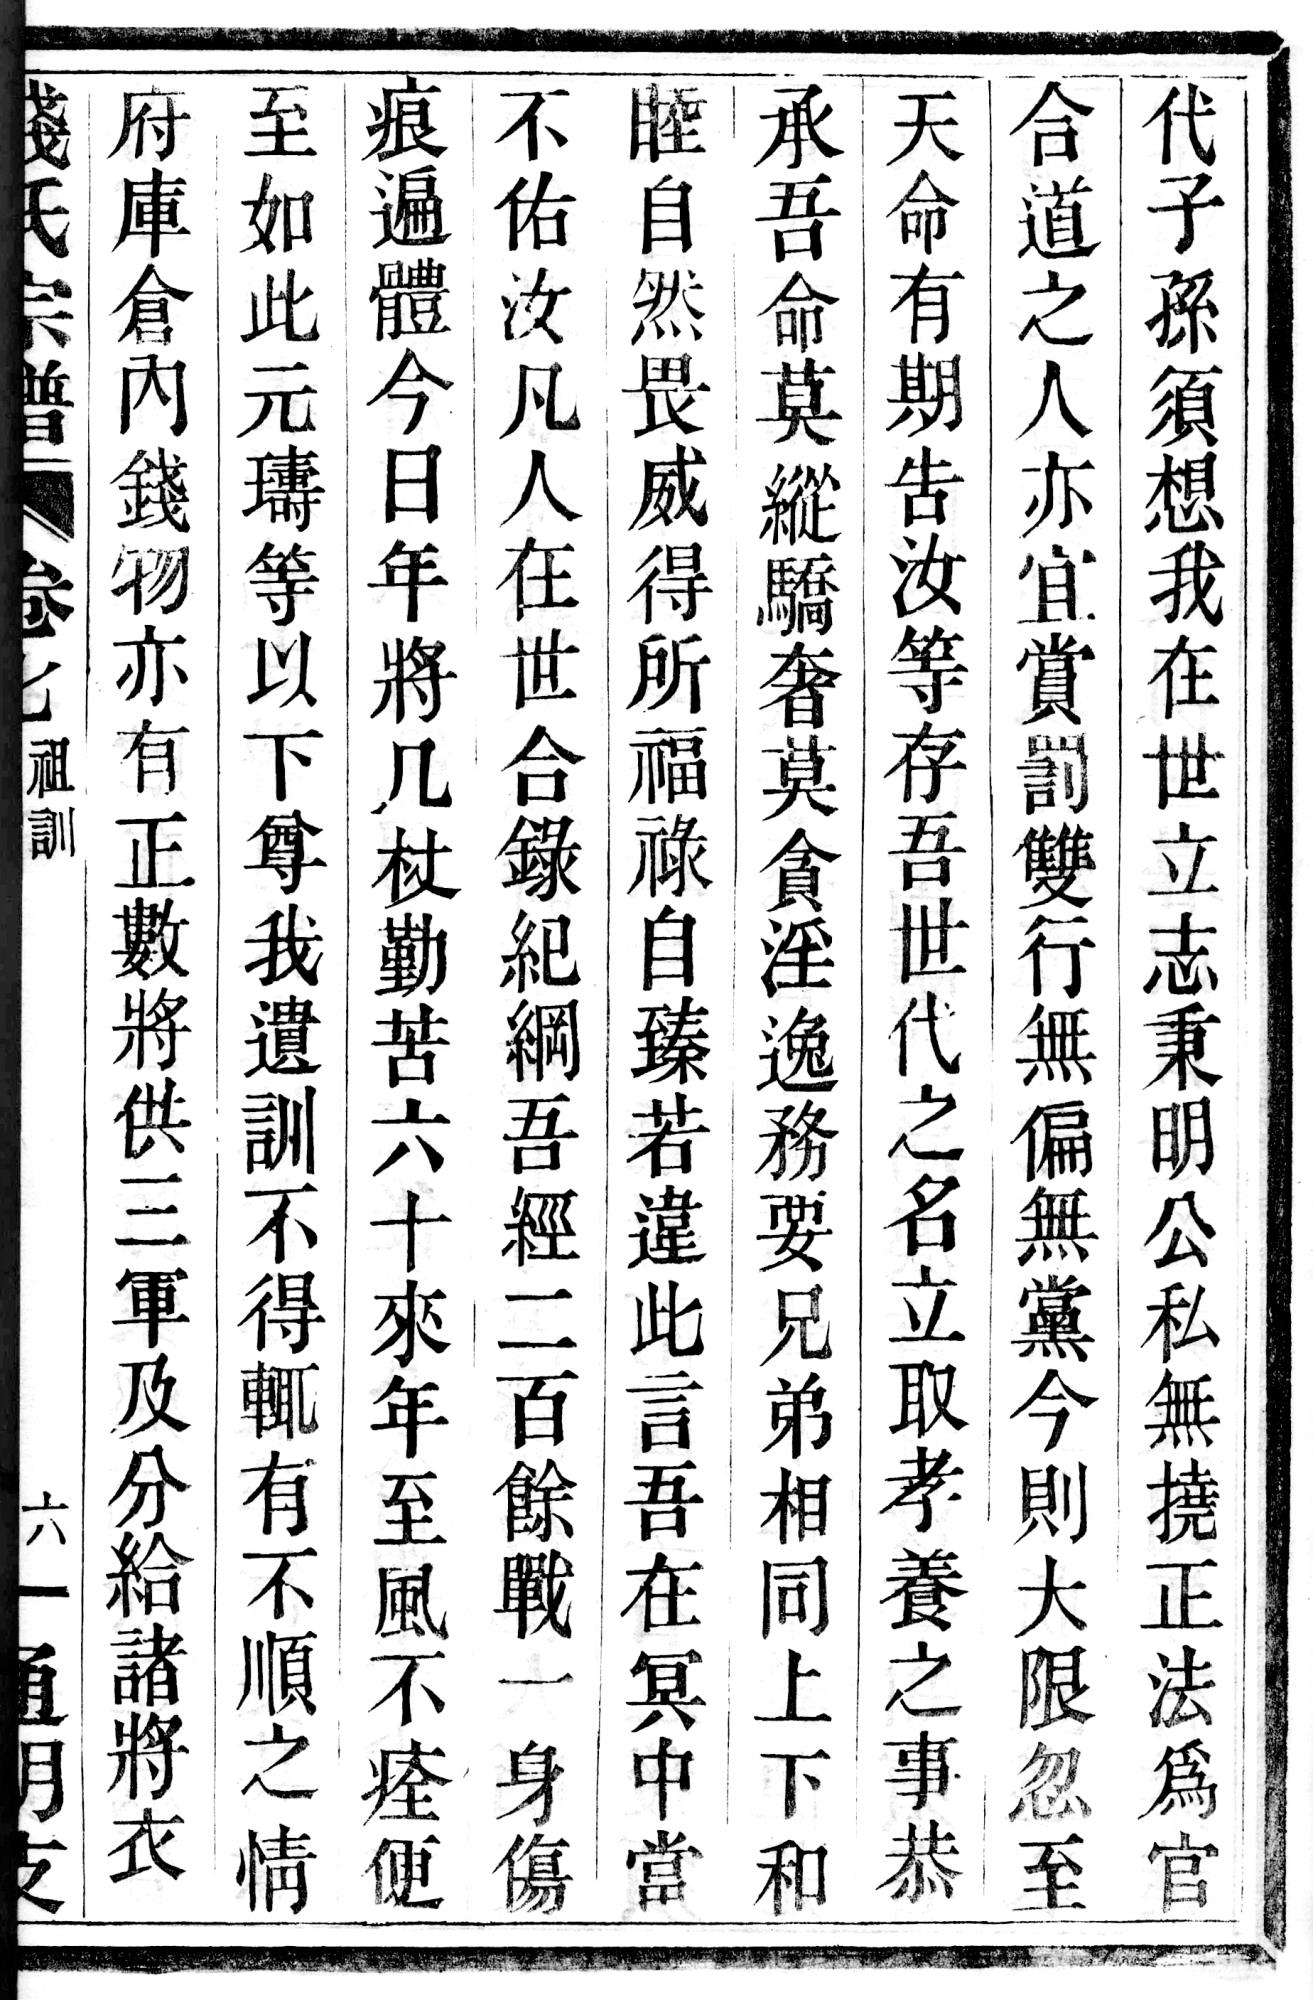 代子孫須想我在世立志秉明公私無撓正法爲官
合道之人亦宜賞罰雙行無偏無黨今則大限忽至
天命有期告汝等存吾世代之名立取孝養之事恭
承吾命莫縱驕奢莫貪淫逸務要兄弟相同上下和
睦自然畏威得所福祿自臻若違此言吾在冥中當
不佑汝凡人在世合錄紀綱吾經二百餘戰一身傷
痕遍體今日年將几杖勤苦六十來年至風不痊便
至如此元璹等以下尊我遺訓不得輒有不順之情
府庫倉內錢物亦有正數將供三軍及分給諸將衣
錢氏宗譜 卷七 祖訓 六一 通明支